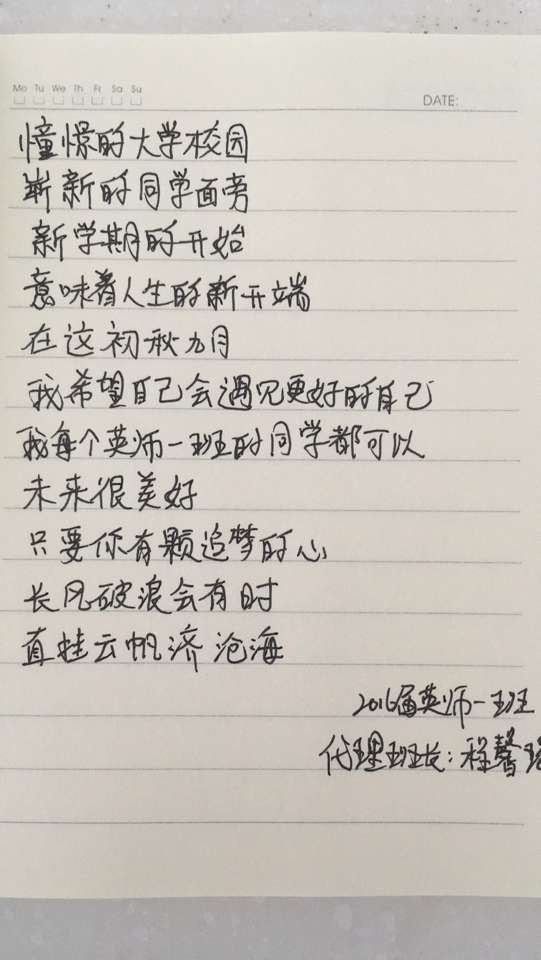 Mo Tu We Th Fr Sa Su
DATE:
憧憬的大学校园
崭新的同学面旁
新学期的开始
意味着人生的新开端
在这初秋九月
我希望自己会遇见更好的自己
我每个英师一班的同学都可以
未来很美好
只要你有颗追梦的心
长风破浪会有时
直挂云帆济沧海
2016届英师一班
代理班长:程馨